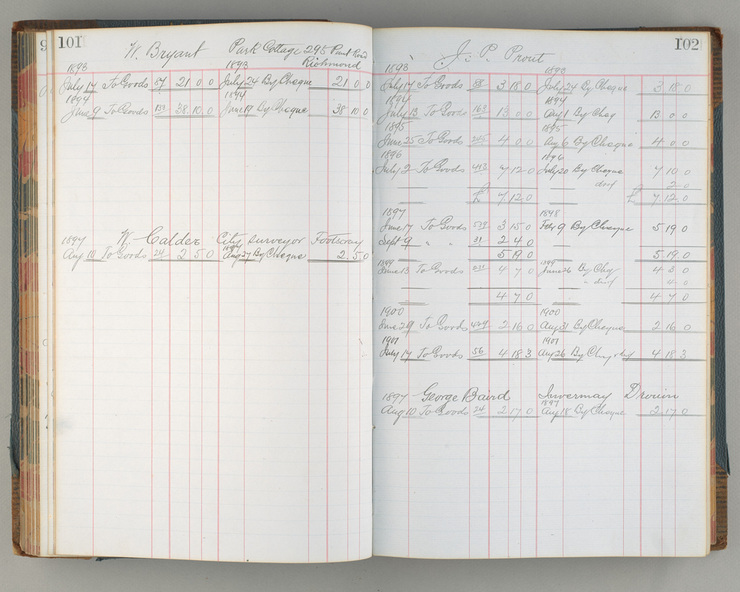 9
101
W. Bryant Park Cottage 295 Punt Road
Richmond
1893 1893
July 17 To Goods 87 21 0 0 July 24 By Cheque 21 0 0
1894 1894
June 9 To Goods 38 10 0 June 19 By Cheque 38 10 0
1897 W. Calder City Surveyor Footscray
1897
Aug 10 To Goods 24 2 5 0 Aug 27 By Cheque 2 5 0
102
J. P. Prout
1893 1893
July 17 To Goods 88 3 18 0 July 24 By Cheque 3 18 0
1894 1894
July 13 To Goods 163 13 0 0 Aug 1 By Cheq 13 0 0
1895 1895
June 25 To Goods 4 0 0 Aug 6 By Cheque 4 0 0
1896 1896
July 2 To Goods 7 12 0 July 20 By Cheque 7 10 0
2 0
£ 7 12 0 £ 7 12 0
1897 1898
June 17 To Goods 3 15 0 Feb 9 By Cheque 5 19 0
Sept 9 " " 31 2 4 0
5 19 0 5 19 0
1899 1899
June 13 To Goods 4 7 0 June 26 By Chq 4 3 0
" 4 0
4 7 0 4 7 0
1900 1900
June 29 To Goods 2 16 0 Aug 31 By Cheque 2 16 0
1901 1901
July 17 To Goods 56 4 18 3 Aug 26 By Chq 4 18 3
1897 George Baird Invermay Drouin
1897
Aug 10 To Goods 24 2 17 0 Aug 18 By Cheque 2 17 0